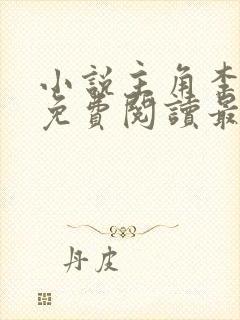 小說主角李
免費閱讀最
丹皮